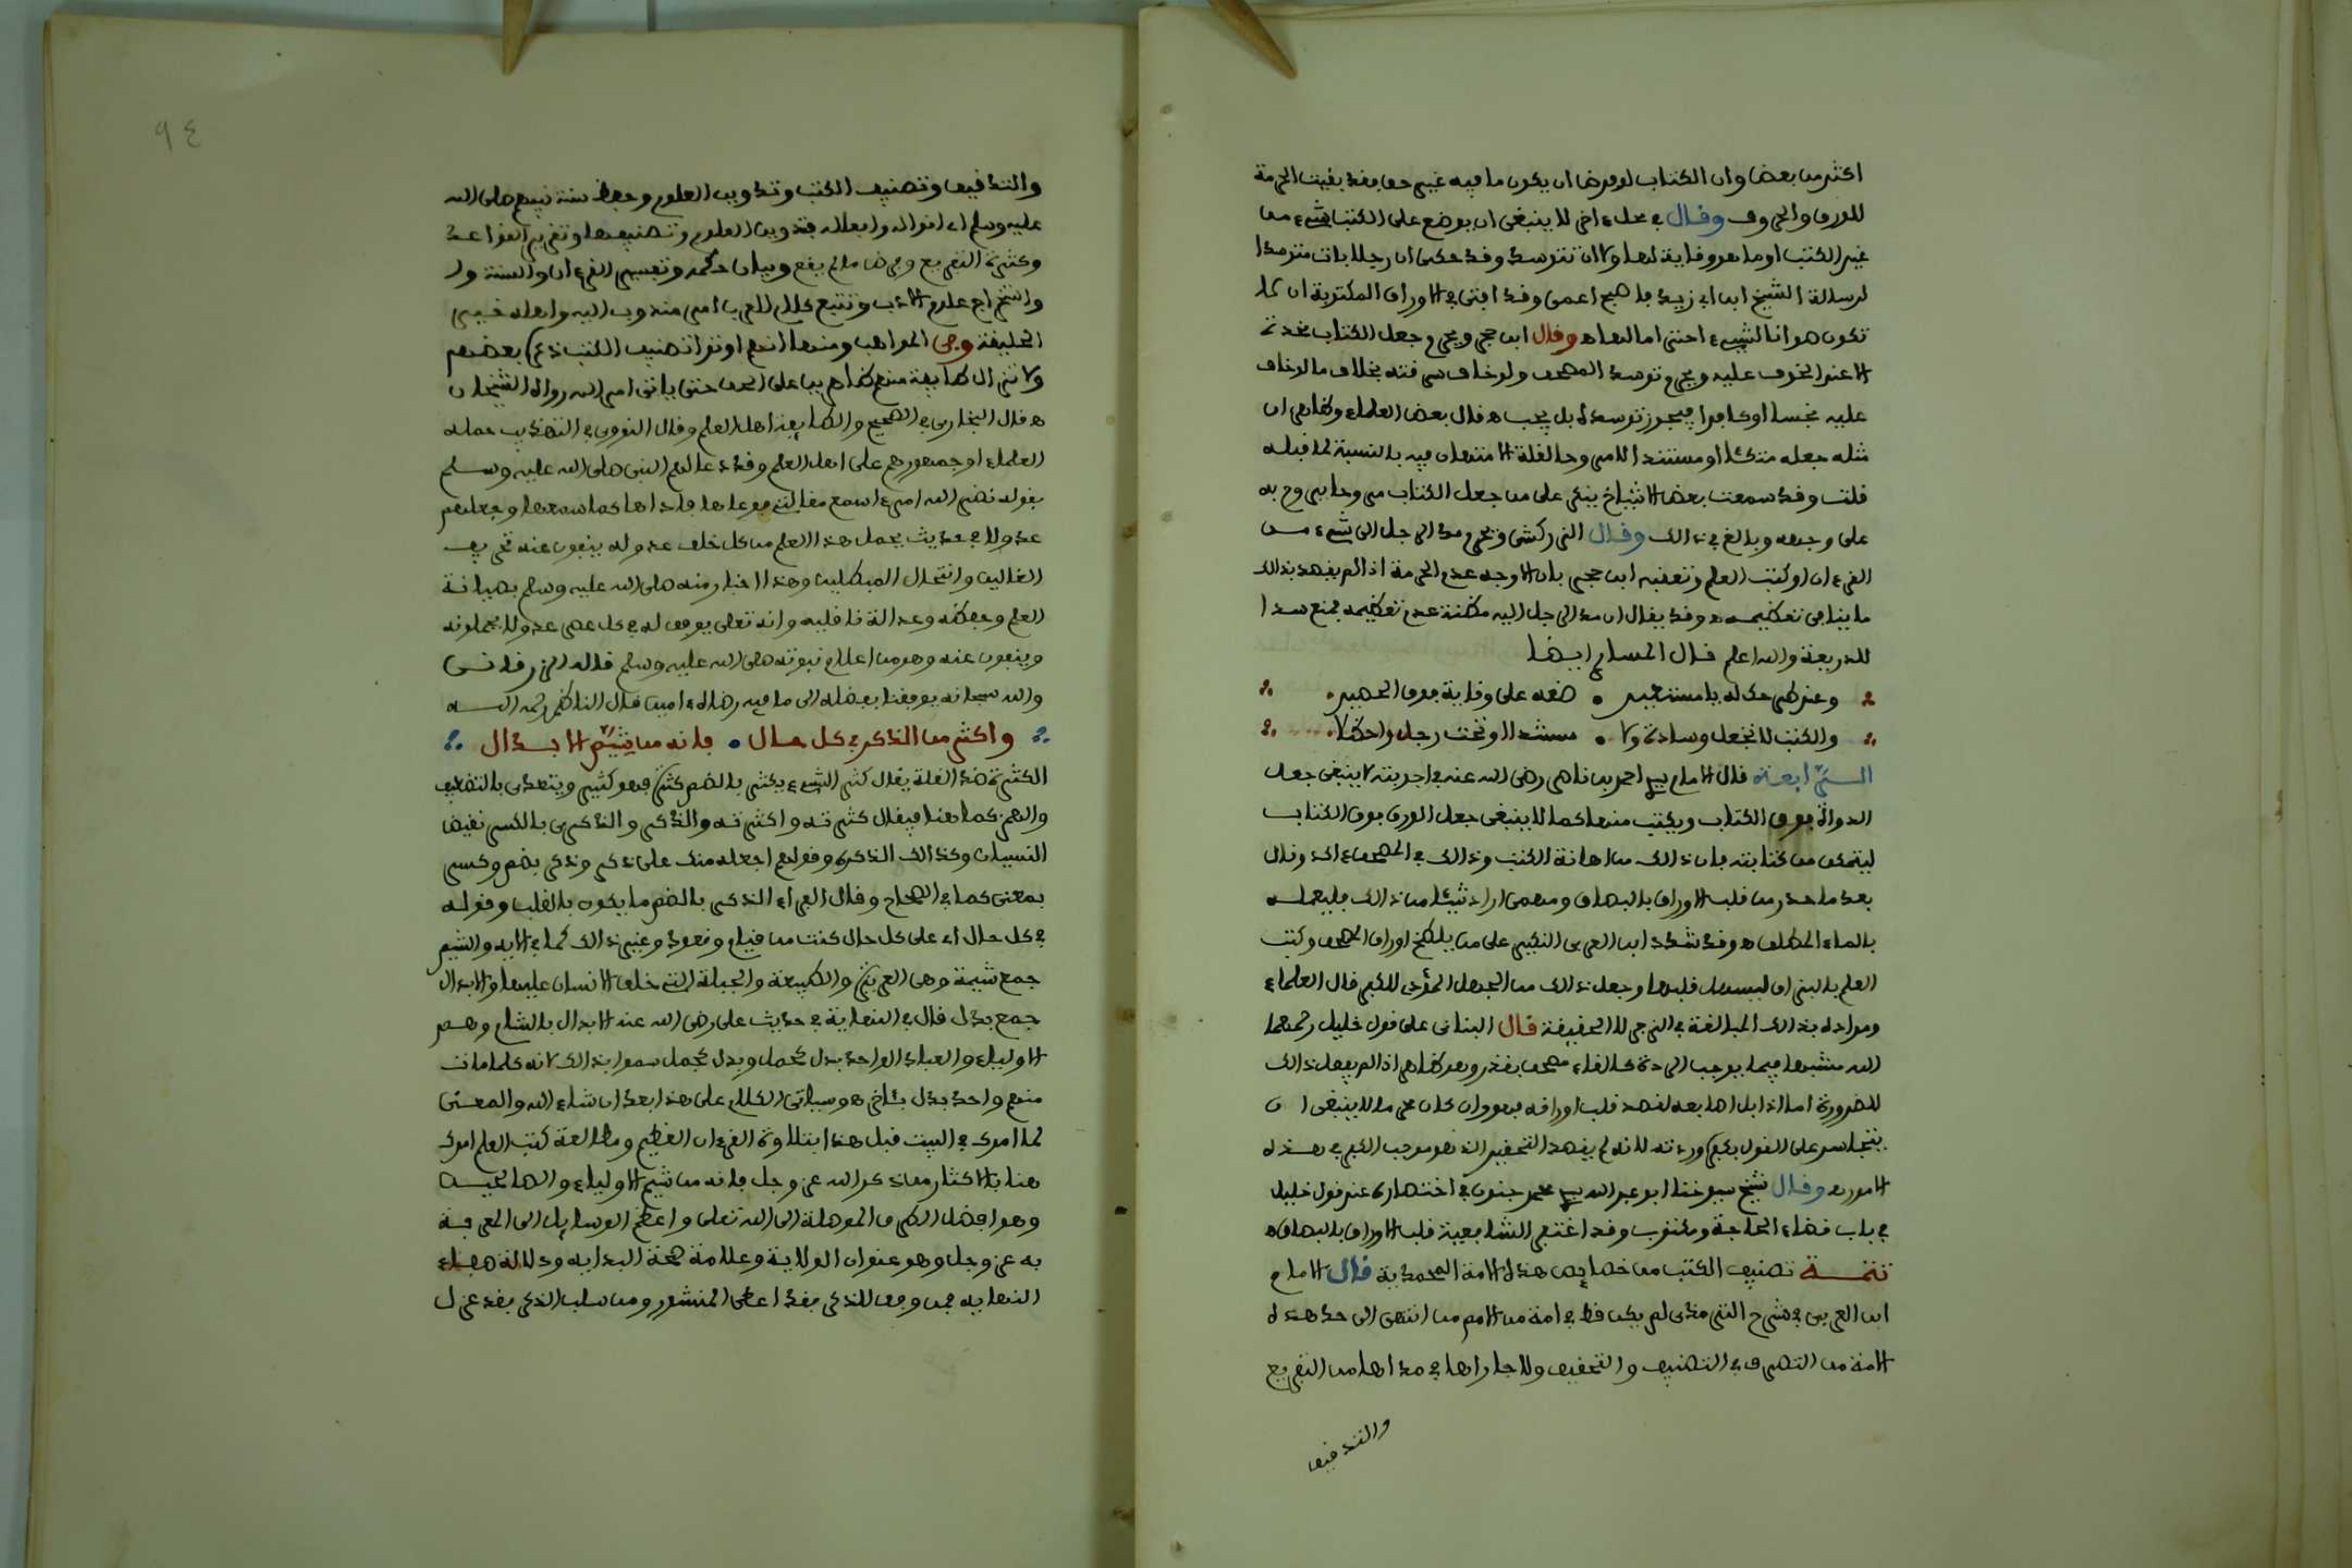 اكثر من بعض وان الكتاب لو فرض ان يكون ما فيه غير حق فقد بقيت الحرمة
للورق والحروف وقال في محل ءاخر لا ينبغي ان يوضع على الكتب شيء من
غير الكتب او ما هو وقاية لها ولا ان تتوسد وقد حكى ان رجلا بات متوسدا
لرسالة الشيخ ابن ابي زيد فاصبح اعمى وقد افتى في الاوراق المكتوبة ان لا
تكون صوانا لشيء احتراما لها ه وقال ابن حجر ويحرم جعل الكتاب مخدة
الا عند الخوف عليه ويحرم توسد المصحف ولو خاف سرقته بخلاف ما لو خاف
عليه نجسا او كافرا فيجوز توسده بل يجب ه قال بعض العلماء وظاهر ان
مثله جعله متكئا او مستندا للامر وحالفلة الامتهان فيه بالنسبة لما قبله
قلت وقد سمعت بعض الاشياخ ينكر على من جعل الكتاب مروحا يروح به
على وجهه وبالغ في ذالك وقال الزركشي ويحرم مد الرجل الى شيء من
القرءان او كتب العلم وتعقبه ابن حجر بان الاوجه عدم الحرمة اذا لم يقصد بذالك
ما ينافي تعظيمه ه وقد يقال ان مد الرجل اليه مظنة عدم تعظيمه فمنع سدا
للذريعة والله اعلم قال المسار ايضا
وعند طرحك له يا مستعير • ضعه على وقاية فوق الحصير
والكتب لا تجعل وسادة ولا • مسندا او تحت رجل واحظلا
السرابعة قال الامام سيد احمد بن ناصر رضي الله عنه في اجوبته لا ينبغي جعل
الدواة فوق الكتاب ويكتب منها كما لا ينبغي جعل الورق فوق الكتاب
ليتمكن من كتابته فان ذالك من اهانة الكتب وذالك في المصحف ءاكد وقال
بعد ما حذر من قلب الاوراق بالبصاق ومهمى اراد شيئا من ذالك فليعمله
بالماء المطلق ه وقد شدد ابن العربي النكير على من يلطخ اوراق المصحف وكتب
العلم بالبزاق ليسهل قلبها وجعل ذالك من الجهل المؤدي للكفر قال العلماء
ومراده بذالك المبالغة في الزجر لا الحقيقة قال البناني على قول خليل رحمهما
الله مشبها فيما يوجب الردة كالقاء مصحف بقذر وهو ظاهر اذا لم يفعل ذالك
للضرورة اما اذا بل اصابعه لقصد قلب اوراقه فهو وان كان محرما لا ينبغي ان
يتجاسر على القول بكفره وردته لانه لم يقصد التحقير الذي هو موجب الكفر في هذه
الامور ه وقال شيخ شيوخنا ابو عبد الله سيد محمد جنون في اختصاره عند قول خليل
في باب قضاء الحاجة ومكتوب وقد اغتفر الشافعية قلب الاوراق بالبصاق ه
تتمــة تصنيف الكتب من خصايص هذه الامة المحمدية قال الامام
ابن العربي في شرح الترمذي لم يكن قط في امة من الامم من انتهى الى حد هذه
الامة من التصرف في التصنيف والتحقيق ولا جاراها في مداها من التفريع
والتدقيق
٩٤
والتدقيق وتصنيف الكتب وتدوين العلوم وحفظ سنة نبيهم صلى الله
عليه وسلم اي اقواله وافعاله فتدوين العلوم وتصنيفها وتقرير القواعد
وكثرة التفريع وفرض ما لم يقع وبيان حكمه وتفسير القرءان والسنة و
واستخراج علوم الادب وتتبع كلام العرب امر مندوب اليه واهله خير
الخليقة وفي المواهب ومنها انهم اوتوا تصنيف الكتب ذكره بعضهم
ولا تزال طايفة منهم ظاهرين على الحق حتى ياتي امر الله رواه الشيخان
ه قال البخاري في الصحيح والطايفة اهل العلم وقال النووي في التهذيب حمله
العلماء او جمهورهم على اهل العلم وقد دعا لهم النبي صلى الله عليه وسلم
بقوله نضر الله امرءا سمع مقالتي فوعاها فاداها كما سمعها وجعلهم
عدولا في حديث يحمل هذا العلم من كل خلف عدوله ينفون عنه تحريف
الغالين وانتحال المبطلين وهذا اخبار منه صلى الله عليه وسلم بصيانة
العلم وحفظه وعدالة ناقليه وانه تعلى يوفق له في كل عصر عدولا يحملونه
وينفون عنه وهو من اعلام نبوته صلى الله عليه وسلم قاله الزرقاني
والله سبحانه يوفقنا بفضله الى ما فيه رضاه ءامين قال الناظم رحمه الله
واكثر من الذكر في كل حال • فانه من شيم الابدال
الكثرة ضد القلة يقال كثر الشيء يكثر بالضم كثرة فهو كثير ويتعدى بالتضعيف
والهمز كما هنا فيقال كثرته واكثرته والذكر والذكرى بالكسر نقيض
النسيان وكذالك الذكرة وقولهم اجعله منك على ذكر وذكر بضم وكسر
بمعنى كما في الصحاح وقال الفراء الذكر بالضم ما يكون بالقلب وقوله
في كل حال اي على كل حال كنت من قيام وقعود وغير ذالك كما في الايه والشيم
جمع شيمة وهي الغريزة والطبيعة والجبلة التي خلق الانسان عليها والابدال
جمع بدل قال في النهاية في حديث علي رضي الله عنه الابدال بالشام وهم
الاولياء والعباد الواحد بدل كحمل وبدل كجمل سموا بذالك لانه كلما مات
منهم واحد بدل بئاخر ه وسياتي الكلام على هذا بعد ان شاء الله والمعنى
لما امرك في البيت قبل هذا بتلاوة القرءان العظيم ومطالعة كتب العلم امرك
هنا بالاكثار من ذكر الله عز وجل فانه من شيم الاولياء والصالحين
وهو افضل الطرق الموصلة الى الله تعلى واعظم الوسايل الى المعرفة
به عز وجل وهو عنوان الولاية وعلامة صحة البدايه ودلالة صفاء
النهايه فمن وفق للذكر فقد اعطى المنشور ومن سلب الذكر فقد عزل